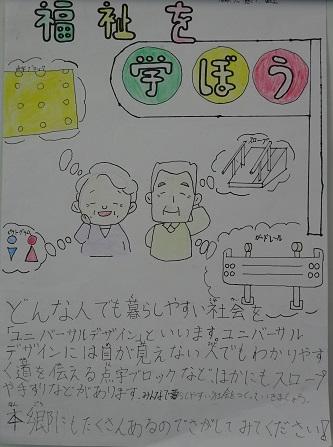 福祉を
学ぼう
スロープ
ピクトグラム
ガードレール
どんな人でも暮らしやすい社会を
「ユニバーサルデザイン」といいます。ユニバーサル
デザインには目が見えない人でもわかりやす
く道を伝える点字ブロックなど、ほかにもスロープ
や手すりなどがあります。みんなで暮らしやすい社会をつくっていきましょう。
本郷にもたくさんあるのでさがしてみてください!!